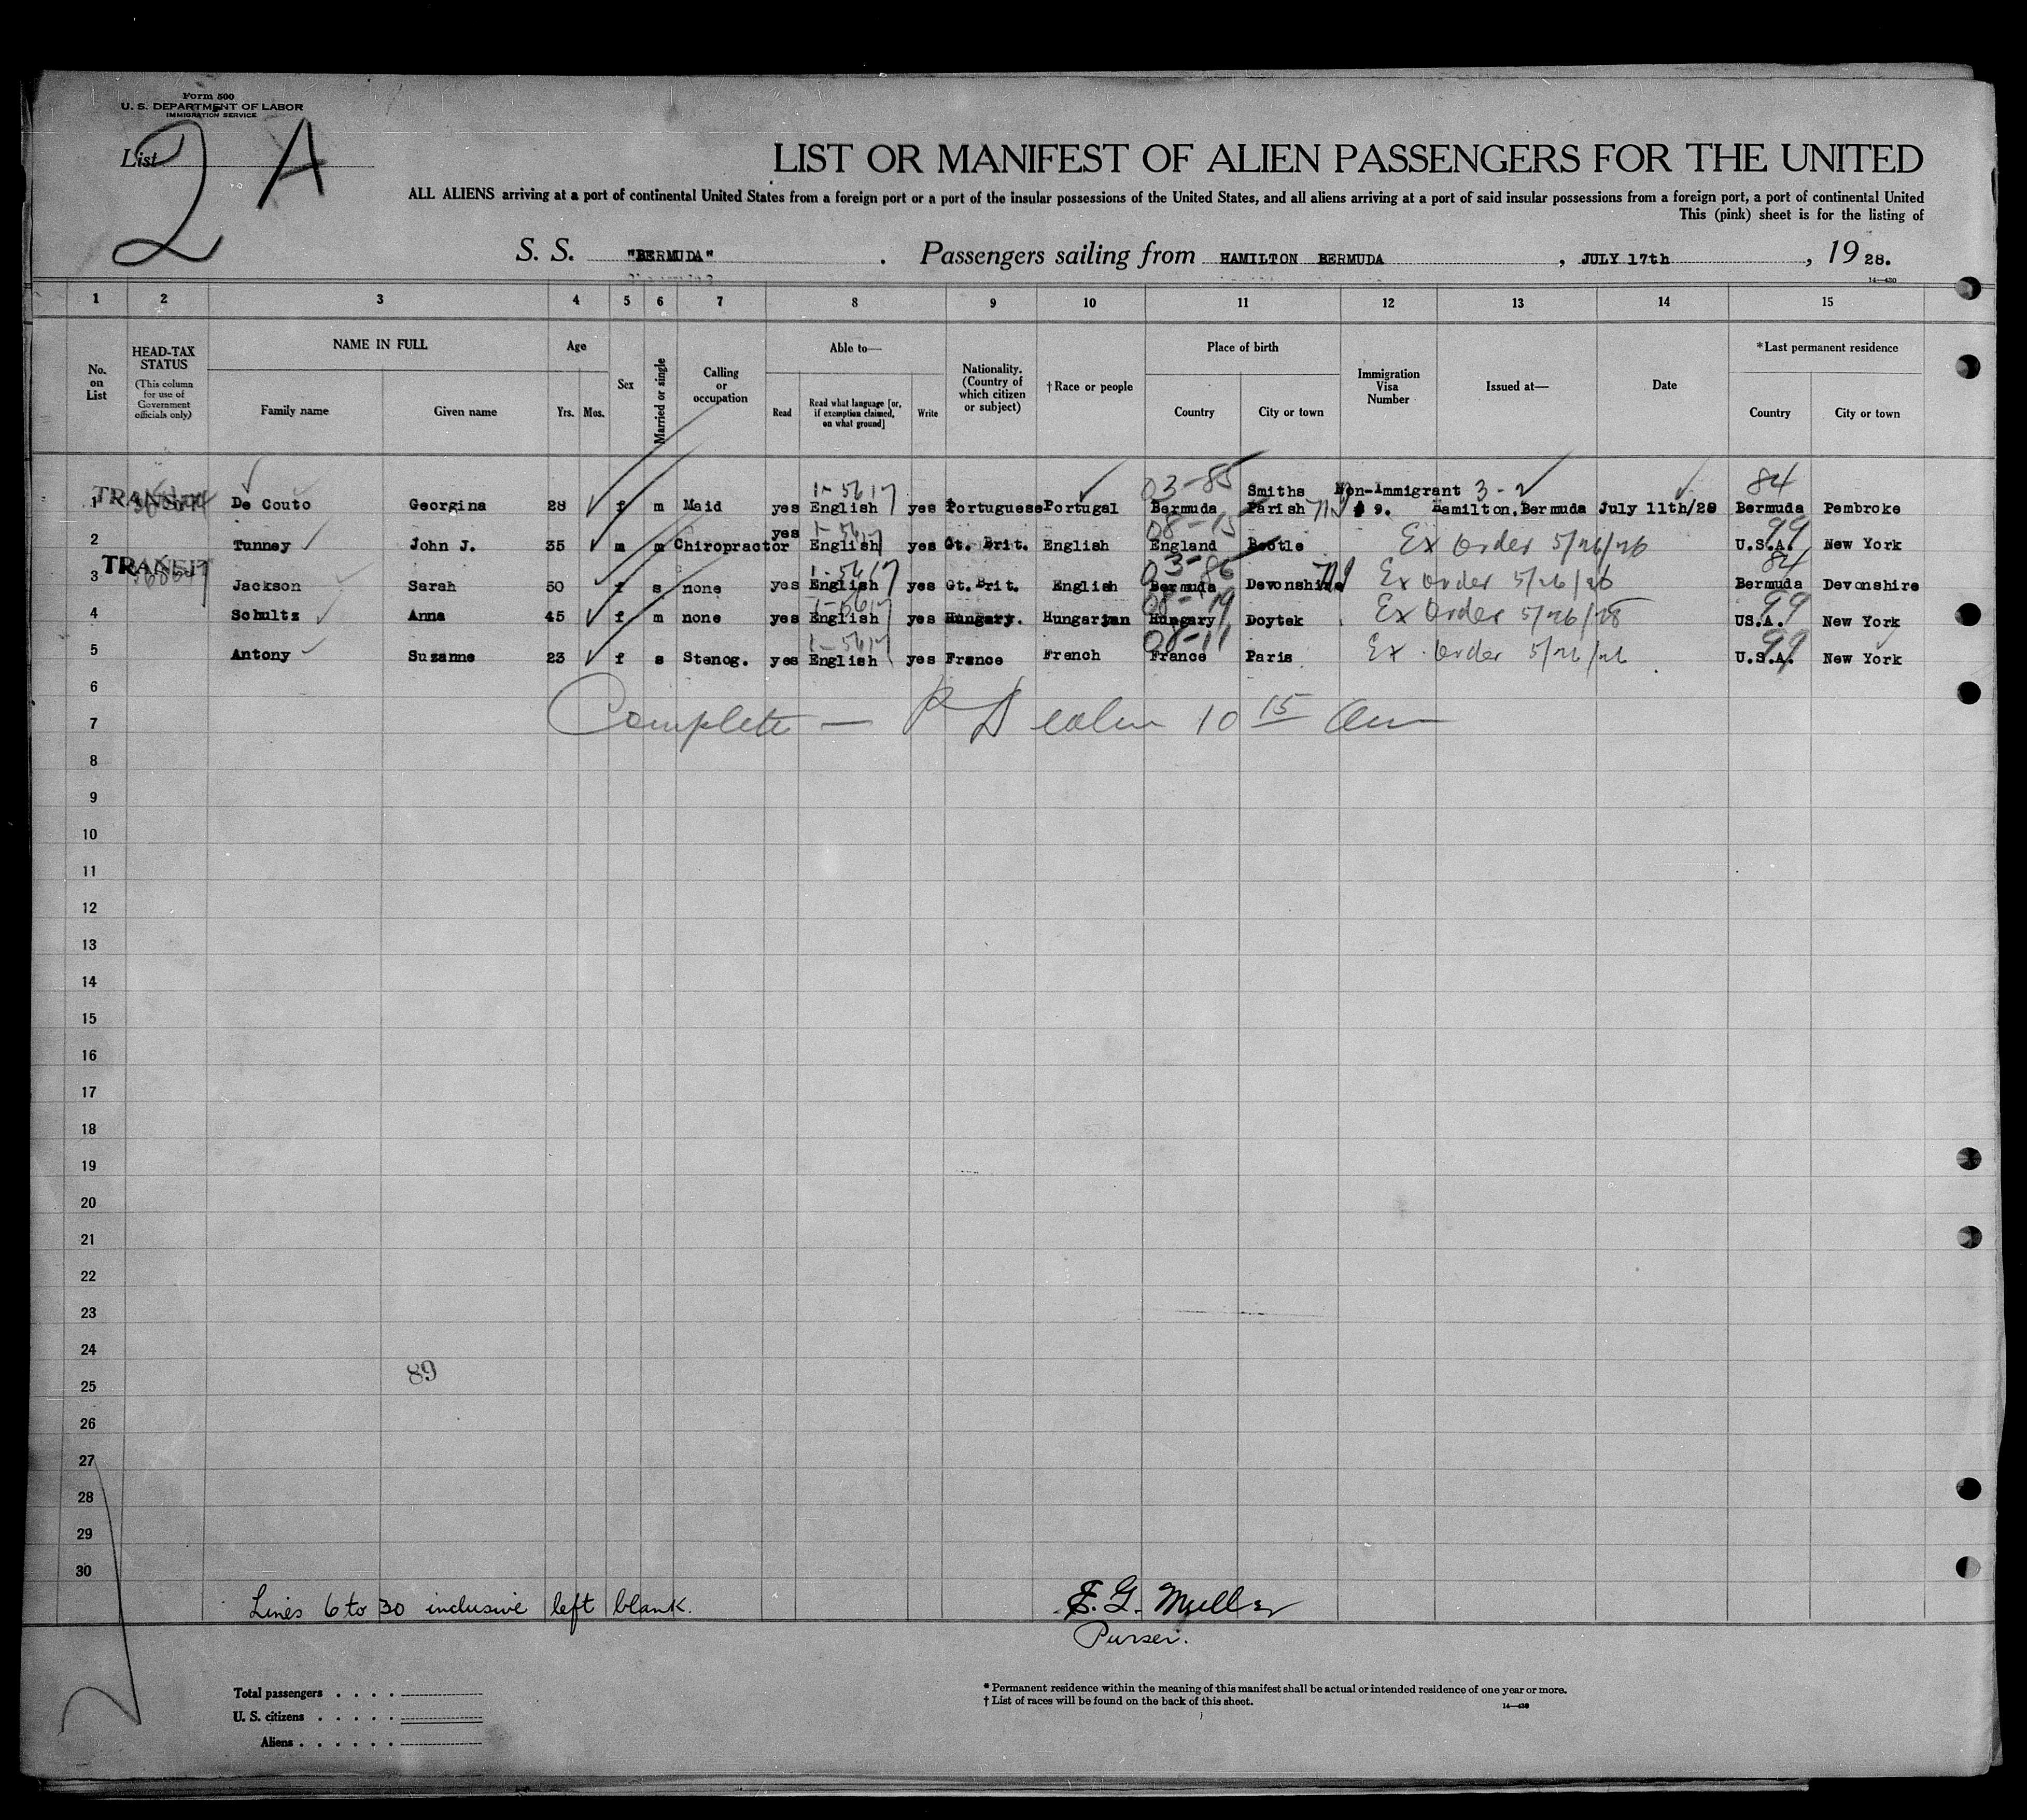 Form 500
U. S. DEPARTMENT OF LABOR
IMMIGRATION SERVICE
List
2 A
LIST OR MANIFEST OF ALIEN PASSENGERS FOR THE UNITED
ALL ALIENS arriving at a port of continental United States from a foreign port or a port of the insular possessions of the United States, and all aliens arriving at a port of said insular possessions from a foreign port, a port of continental United
This (pink) sheet is for the listing of
S. S. "BERMUDA" . Passengers sailing from HAMILTON BERMUDA , JULY 17th , 19 28.
14—430
1 2 3 4 5 6 7 8 9 10 11 12 13 14 15
No. on List
HEAD-TAX STATUS
(This column for use of Government officials only)
NAME IN FULL
Family name Given name
Age
Yrs. Mos.
Sex
Married or single
Calling or occupation
Able to—
Read
Read what language [or, if exemption claimed, on what ground]
Write
Nationality. (Country of which citizen or subject)
† Race or people
Place of birth
Country City or town
Immigration Visa Number
Issued at—
Date
* Last permanent residence
Country City or town
1 TRANSIT De Couto Georgina 28 f m Maid yes 1-5617 English yes Portuguese Portugal 03-85 Bermuda Smiths Parish Non-Immigrant # 9. 3-2 Hamilton, Bermuda July 11th/28 84 Bermuda Pembroke
2 Tunney John J. 35 m m Chiropractor yes 1-5617 English yes Gt. Brit. English 08-15 England Bootle Ex Order 5/26/26 99 U.S.A. New York
3 TRANSIT Jackson Sarah 50 f s none yes 1-5617 English yes Gt. Brit. English 03-86 Bermuda Devonshire Ex Order 5/26/26 84 Bermuda Devonshire
4 Schultz Anna 45 f m none yes 1-5617 English yes Hungary. Hungarian 08-19 Hungary Doytek Ex Order 5/26/28 99 US.A. New York
5 Antony Suzanne 23 f s Stenog. yes 1-5617 English yes France French 08-11 France Paris Ex Order 5/26/26 99 U.S.A. New York
6
7 Complete — 10 15 am
8
9
10
11
12
13
14
15
16
17
18
19
20
21
22
23
24
89
25
26
27
28
29
30
Lines 6 to 30 inclusive left blank.
E. G. Muller
Purser.
Total passengers . . . .
U. S. citizens . . . . .
Aliens . . . . . .
* Permanent residence within the meaning of this manifest shall be actual or intended residence of one year or more.
† List of races will be found on the back of this sheet.
14—430